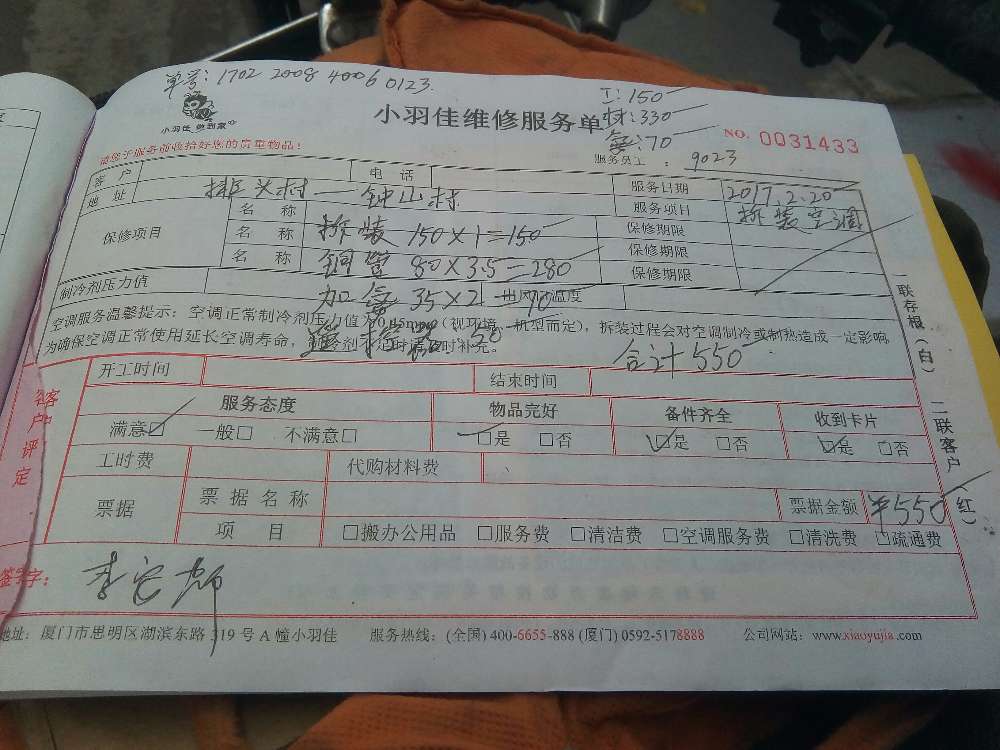 单号: 1702 2008 4006 0123.
工: 150
材: 330
氟: 70
小羽佳 做到家
小羽佳维修服务单
NO. 0031433
请您于服务前收拾好您的贵重物品!
服务员工: 9023
客户 电话 服务日期 2017.2.20
地址 排头村—钟山村 服务项目 拆装空调
保修项目
名称 保修期限
名称 拆装 150×1=150 保修期限
名称 铜管 80×3.5=280 保修期限
制冷剂压力值 加氟 35×2=70 出风口温度
空调服务温馨提示: 空调正常制冷剂压力值为0.45mpa(视环境、机型而定), 拆装过程会对空调制冷或制热造成一定影响
为确保空调正常使用延长空调寿命, 制冷剂不足时需及时补充。
20
合计 550
开工时间 结束时间
客户评定
服务态度 物品完好 备件齐全 收到卡片
满意☑ 一般□ 不满意□ ☑是 □否 ☑是 □否 ☑是 □否
工时费 代购材料费
票据 票据名称 票据金额 ¥550
项目 □搬办公用品 □服务费 □清洁费 □空调服务费 □清洗费 □疏通费
一联存根(白) 二联客户(红)
签字:
地址: 厦门市思明区湖滨东路 319 号 A 幢小羽佳 服务热线: (全国) 400-6655-888 (厦门) 0592-5178888 公司网站: www.xiaoyujia.com